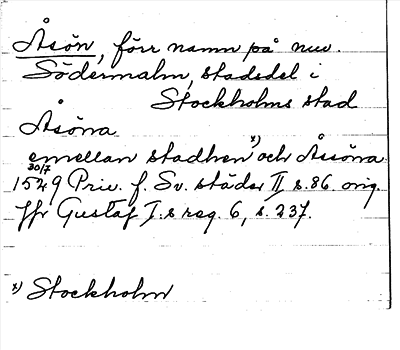 Åsön, förr namn på nuv.
Södermalm, stadsdel i
Stockholms stad
Åsöna
emellan stadhen x) och Åssöna
30/7
1529 Priv. f. Sv. städer II s. 86 orig.
Jfr Gustaf I:s reg. 6, s. 237.
x) Stockholm